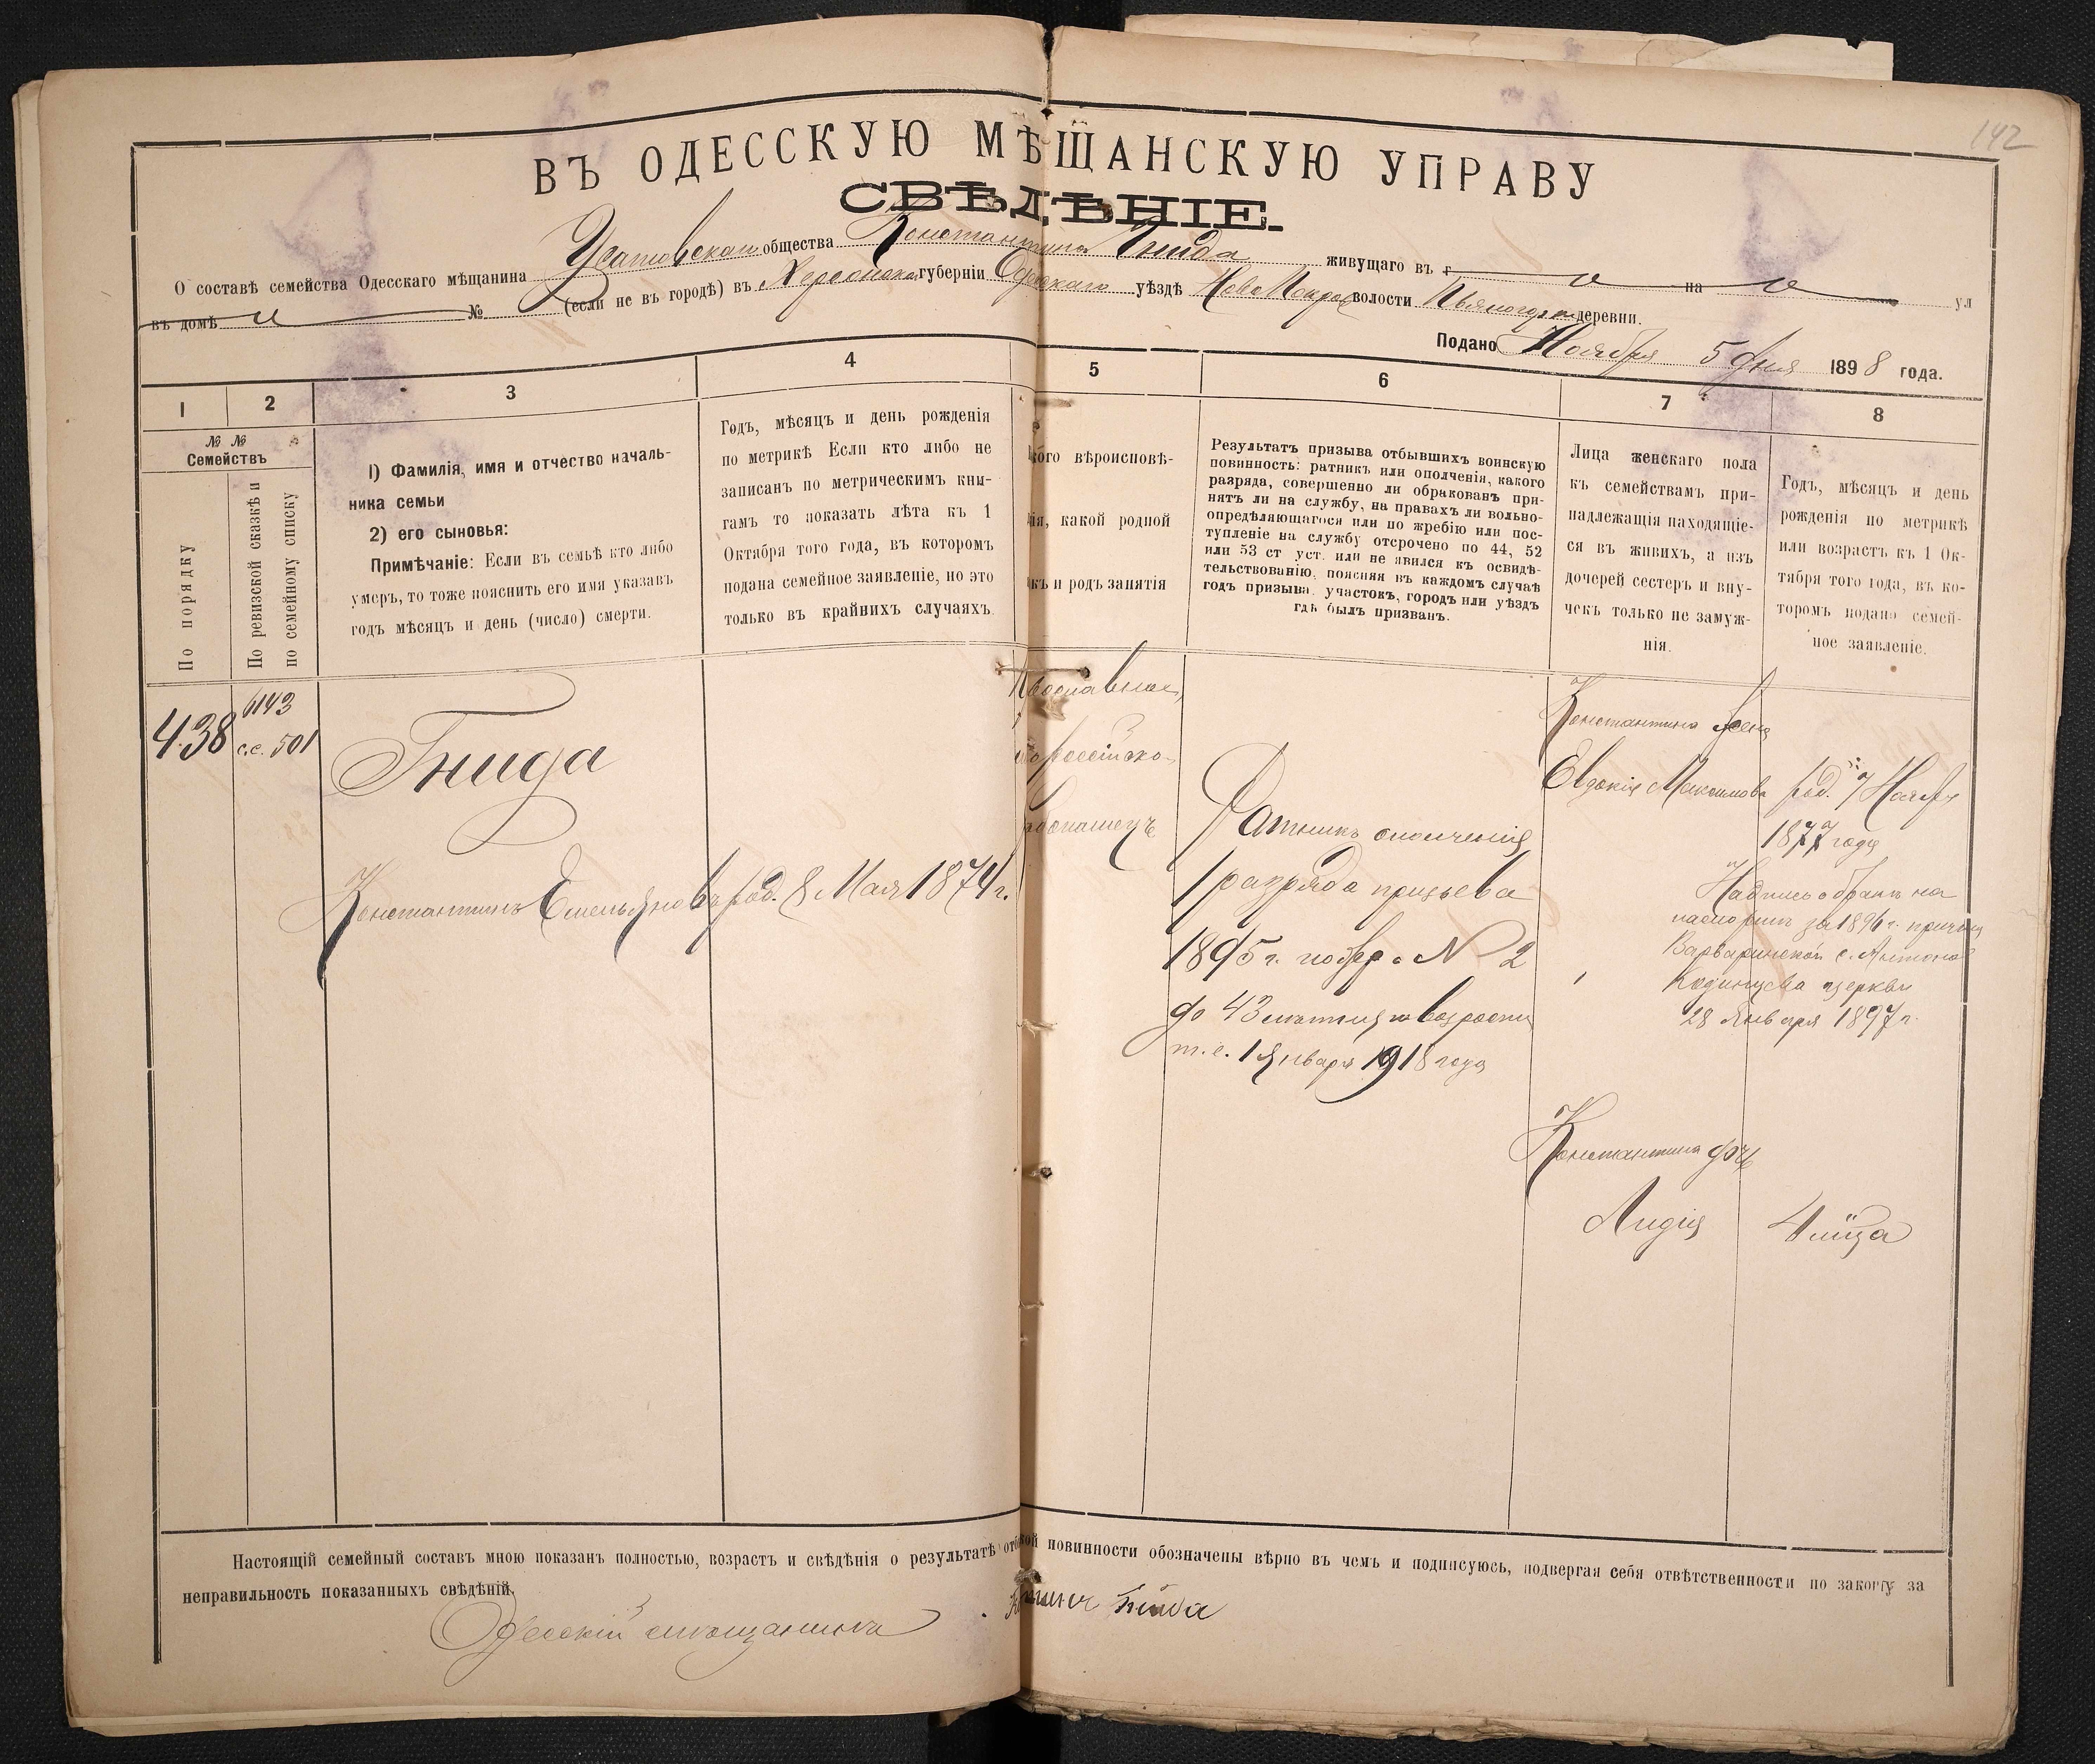 142
ВЪ ОДЕССКУЮ МѢЩАНСКУЮ УПРАВУ
СВѢДѢНІЕ.
О составѣ семейства Одесскаго мѣщанина Усатовскаго общества Константина Гнида живущаго въ г на ул
въ домѣ № (если не въ городѣ) въ Херсонской губерніи Одесскаго уѣздѣ волости деревни.
Подано Ноября 5 дня 1898 года.
1 2 3 4 5 6 7 8
№ №
Семействъ
По порядку
По ревизской сказкѣ и
по семейному списку
1) Фамилія, имя и отчество началь-
ника семьи
2) его сыновья:
Примѣчаніе: Если въ семьѣ кто либо
умеръ, то тоже пояснить его имя указавъ
годъ мѣсяцъ и день (число) смерти.
Годъ, мѣсяцъ и день рожденія
по метрикѣ Если кто либо не
записанъ по метрическимъ кни-
гамъ то показать лѣта къ 1
Октября того года, въ которомъ
подана семейное заявленіе, но это
только въ крайнихъ случаяхъ.
кого вѣроисповѣ-
нія, какой родной
къ и родъ занятія
Результатъ призыва отбывшихъ воинскую
повинность: ратникъ или ополченія, какого
разряда, совершенно ли обракованъ при-
нятъ ли на службу, на правахъ ли вольно-
опредѣляющагося или по жребію или пос-
тупленіе на службу отсрочено по 44, 52
или 53 ст уст. или не явился къ освидѣ-
тельствованію, поясняя въ каждомъ случаѣ
годъ призыва участокъ, городъ или уѣздъ
гдѣ былъ призванъ.
Лица женскаго пола
къ семействамъ при-
надлежащія находящіе-
ся въ живихъ, а изъ
дочерей сестеръ и вну-
чекъ только не замуж-
нія.
Годъ, мѣсяцъ и день
рожденія по метрикѣ
или возрастъ къ 1 Ок-
тября того года, въ ко-
торомъ подано семей-
ное заявленіе.
438
6143
с.с. 501
Гнида
Константинъ Емельяновъ род. 8 Мая 1874 г.
Ратникъ ополченія
1 разряда призыва
1895 г. № 2
до 43 лѣтняго возраста
т.е. 1 Января 1918 года
Константина жена
Евдокія Максимова род. 7 Ноября
1877 года
Надпись о бракѣ на
паспортѣ за 1896 г. причта
Варваринской с. Антоно
Кодинцева церкви
28 Января 1897 г.
Константина дочь
Лидія
Настоящій семейный составъ мною показанъ полностью, возрастъ и свѣдѣнія о результатѣ повинности обозначены вѣрно въ чемъ и подписуюсь, подвергая себя отвѣтственности по закону за
неправильность показанныхъ свѣдѣній.
Одесскій мѣщанинъ